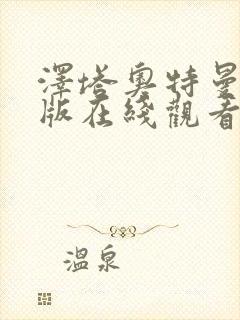 澤塔奧特曼
版在綫觀看
溫泉